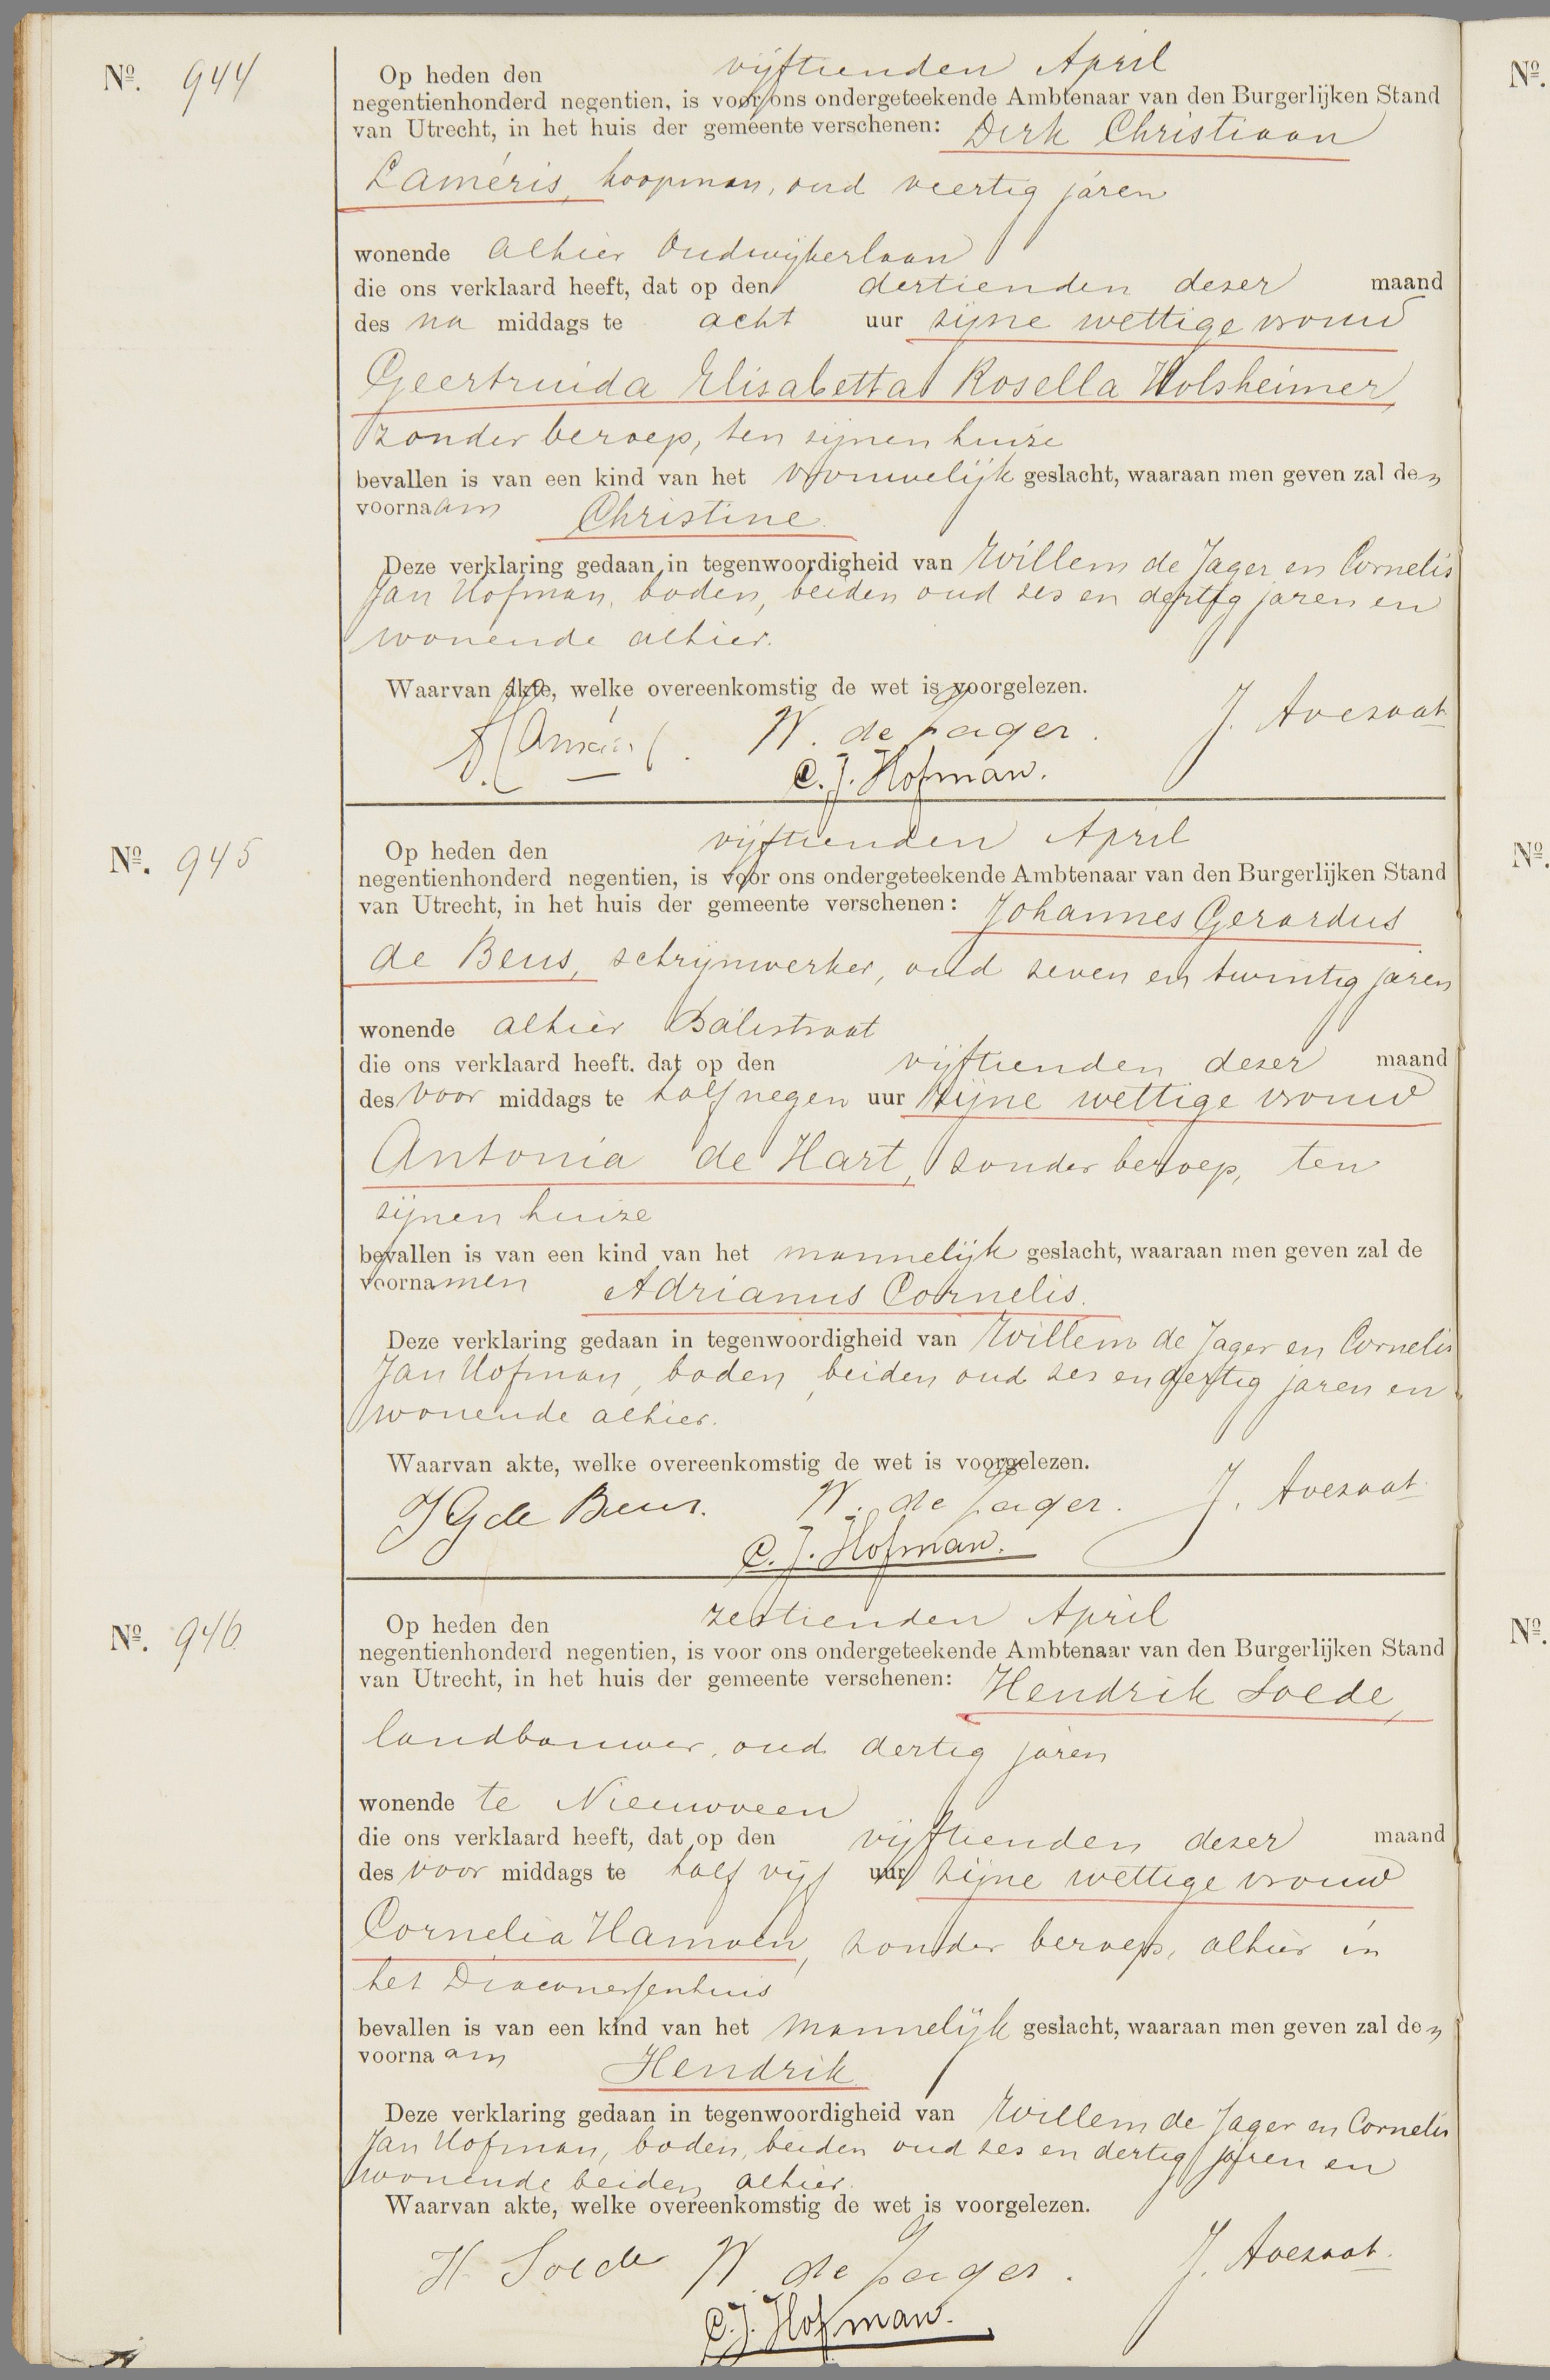 Nº. 944
Op heden den vijftienden April
negentienhonderd negentien, is voor ons ondergeteekende Ambtenaar van den Burgerlijken Stand
van Utrecht, in het huis der gemeente verschenen: Dirk Christiaan
Laméris, koopman, oud veertig jaren
wonende alhier Oudwijkerlaan
die ons verklaard heeft, dat op den dertienden dezer maand
des na middags te acht uur zijne wettige vrouw
Geertruida Elisabetta Rosella Holsheimer,
zonder beroep, ten zijnen huize
bevallen is van een kind van het vrouwelijk geslacht, waaraan men geven zal den
voornaam Christine.
Deze verklaring gedaan in tegenwoordigheid van Willem de Jager en Cornelis
Jan Hofman, boden, beiden oud zes en dertig jaren en
wonende alhier.
Waarvan akte, welke overeenkomstig de wet is voorgelezen.
W. de Jager. J. Avezaat
C. J. Hofman.
Nº. 945
Op heden den vijftienden April
negentienhonderd negentien, is voor ons ondergeteekende Ambtenaar van den Burgerlijken Stand
van Utrecht, in het huis der gemeente verschenen: Johannes Gerardus
de Beus, schrijnwerker, oud zeven en twintig jaren
wonende alhier Balistraat
die ons verklaard heeft. dat op den vijftienden dezer maand
des voor middags te half negen uur zijne wettige vrouw
Antonia de Hart, zonder beroep, ten
zijnen huize
bevallen is van een kind van het mannelijk geslacht, waaraan men geven zal de
voornamen Adrianus Cornelis.
Deze verklaring gedaan in tegenwoordigheid van Willem de Jager en Cornelis
Jan Hofman, boden, beiden oud zes en dertig jaren en
wonende alhier.
Waarvan akte, welke overeenkomstig de wet is voorgelezen.
J G de Beus. W. de Jager. J. Avezaat.
C. J. Hofman.
Nº. 946
Op heden den zestienden April
negentienhonderd negentien, is voor ons ondergeteekende Ambtenaar van den Burgerlijken Stand
van Utrecht, in het huis der gemeente verschenen: Hendrik Soede,
landbouwer, oud dertig jaren
wonende te Nieuwveen
die ons verklaard heeft, dat op den vijftienden dezer maand
des voor middags te half vijf uur zijne wettige vrouw
Cornelia Hamoen, zonder beroep, alhier in
het Diaconessenhuis
bevallen is van een kind van het mannelijk geslacht, waaraan men geven zal den
voornaam Hendrik
Deze verklaring gedaan in tegenwoordigheid van Willem de Jager en Cornelis
Jan Hofman, boden, beiden oud zes en dertig jaren en
wonende beiden alhier.
Waarvan akte, welke overeenkomstig de wet is voorgelezen.
H. Soede W. de Jager. J. Avezaat.
C. J. Hofman.
Nº.
Nº.
Nº.